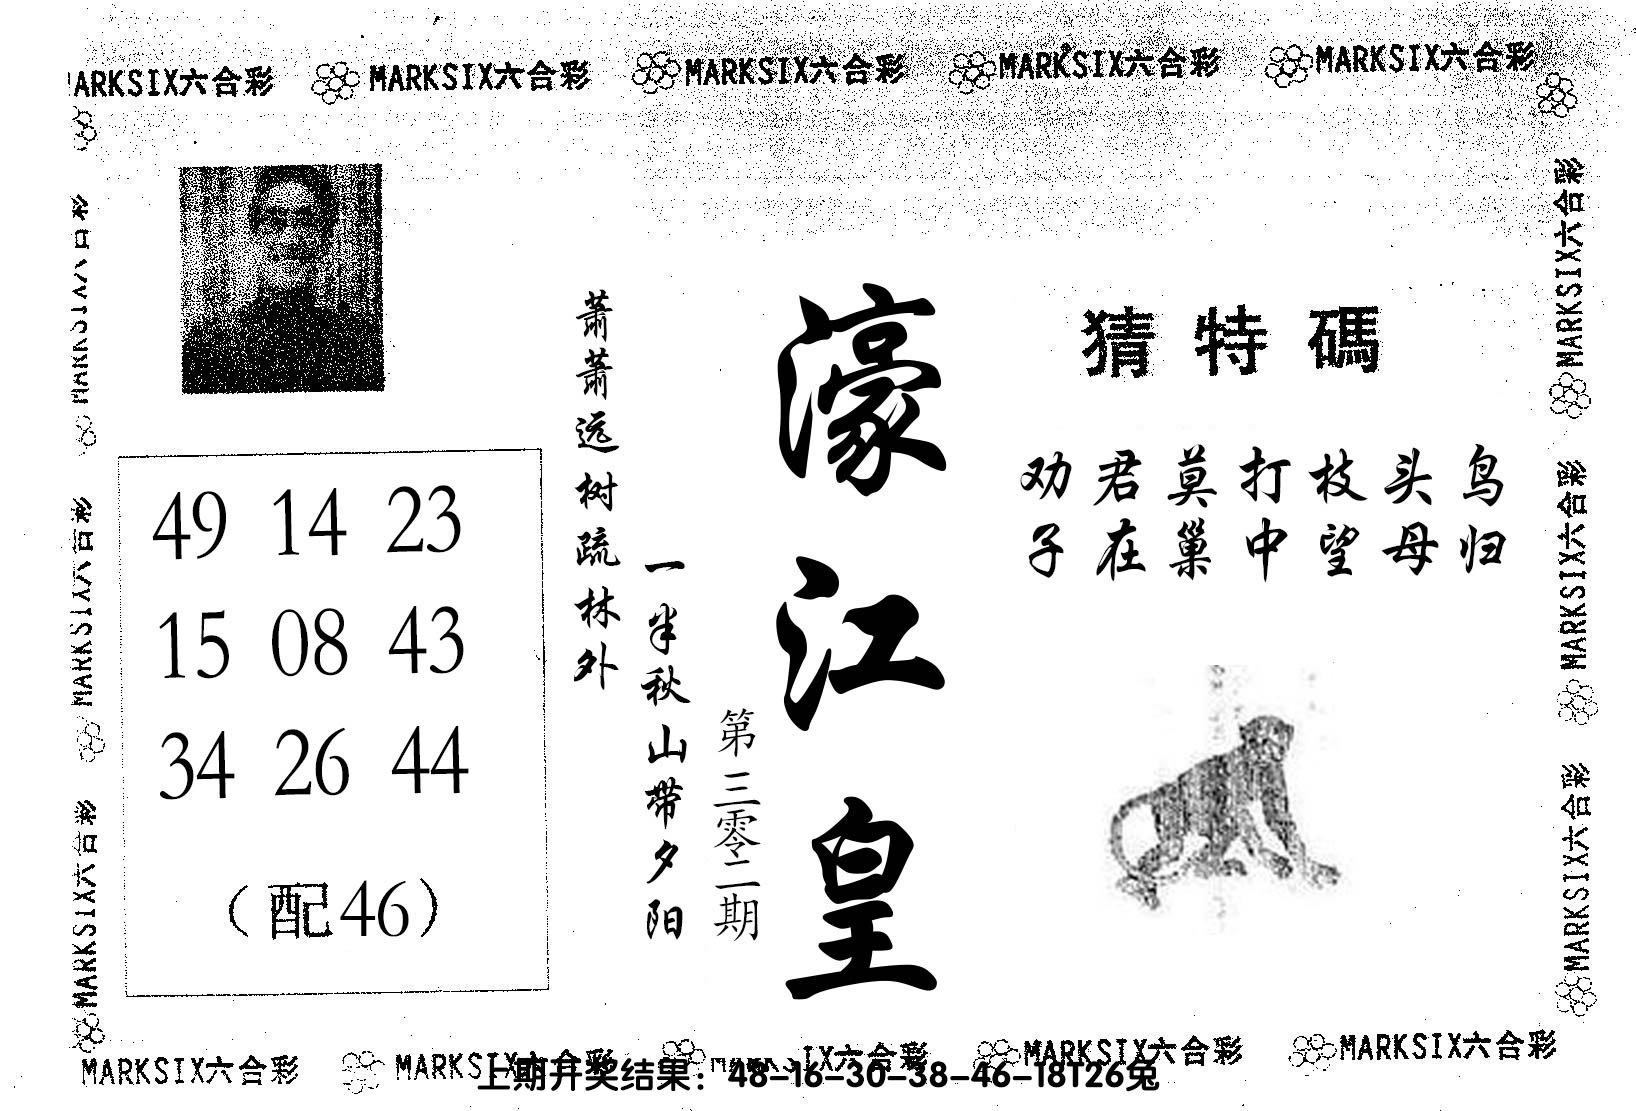 MARKSIX六合彩 MARKSIX六合彩 MARKSIX六合彩 MARKSIX六合彩 MARKSIX六合彩
猜特碼
劝君莫打枝头鸟
子在巢中望母归
濠江皇
第三零二期
萧萧远树疏林外
一半秋山带夕阳
49 14 23
15 08 43
34 26 44
（配46）
MARKSIX六合彩
MARKSIX六合彩
MARKSIX六合彩
MARKSIX六合彩
MARKSIX六合彩
MARKSIX六合彩
MARKSIX六合彩 MARKSIX六合彩 MARKSIX六合彩 MARKSIX六合彩 MARKSIX六合彩
上期开奖结果：48-16-30-38-46-18T26兔